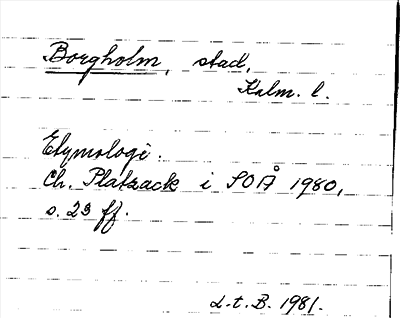 Borgholm, stad,
Kalm. l.
Etymologi.
Ch. Platzack i SOÅ 1980,
s. 23 ff.
L.t.B. 1981.